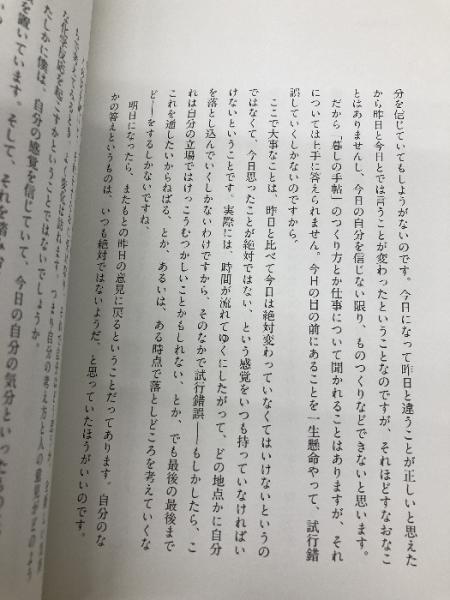 分を信じていてもしようがないのです。今日になって昨日と違うことが正しいと思えた
から昨日と今日とでは言うことが変わったということなのですが、それほどすなおなこ
とはありませんし、今日の自分を信じない限り、ものつくりなどできないと思います。
だから「暮しの手帖」のつくり方とか仕事について聞かれることはありますが、それ
については上手に答えられません。今日の目の前にあることを一生懸命やって、試行錯
誤していくしかないのですから。
ここで大事なことは、昨日と比べて今日は絶対変わっていなくてはいけないというの
ではなくて、今日思ったことが絶対ではない、という感覚をいつも持っていなければい
けないということです。実際には、時間が流れてゆくにしたがって、どの地点かに自分
を落とし込んでいくしかないわけですから、そのなかで試行錯誤――もしかしたら、こ
れは自分の立場ではけっこうむつかしいことかもしれない、とか、でも最後の最後まで
これを通したいからねばる、とか、あるいは、ある時点で落としどころを考えていくな
ど――をするしかないですね。
明日になったら、またもとの昨日の意見に戻るということだってあります。自分のな
かの答えというものは、いつも絶対ではないようだ、と思っていたほうがいいのです。
な化学反応を起こすかということではないでしょうか。
たしかに僕は、自分の感覚を信じていて、今日の自分の気分といったものに
を置いています。そして、それを